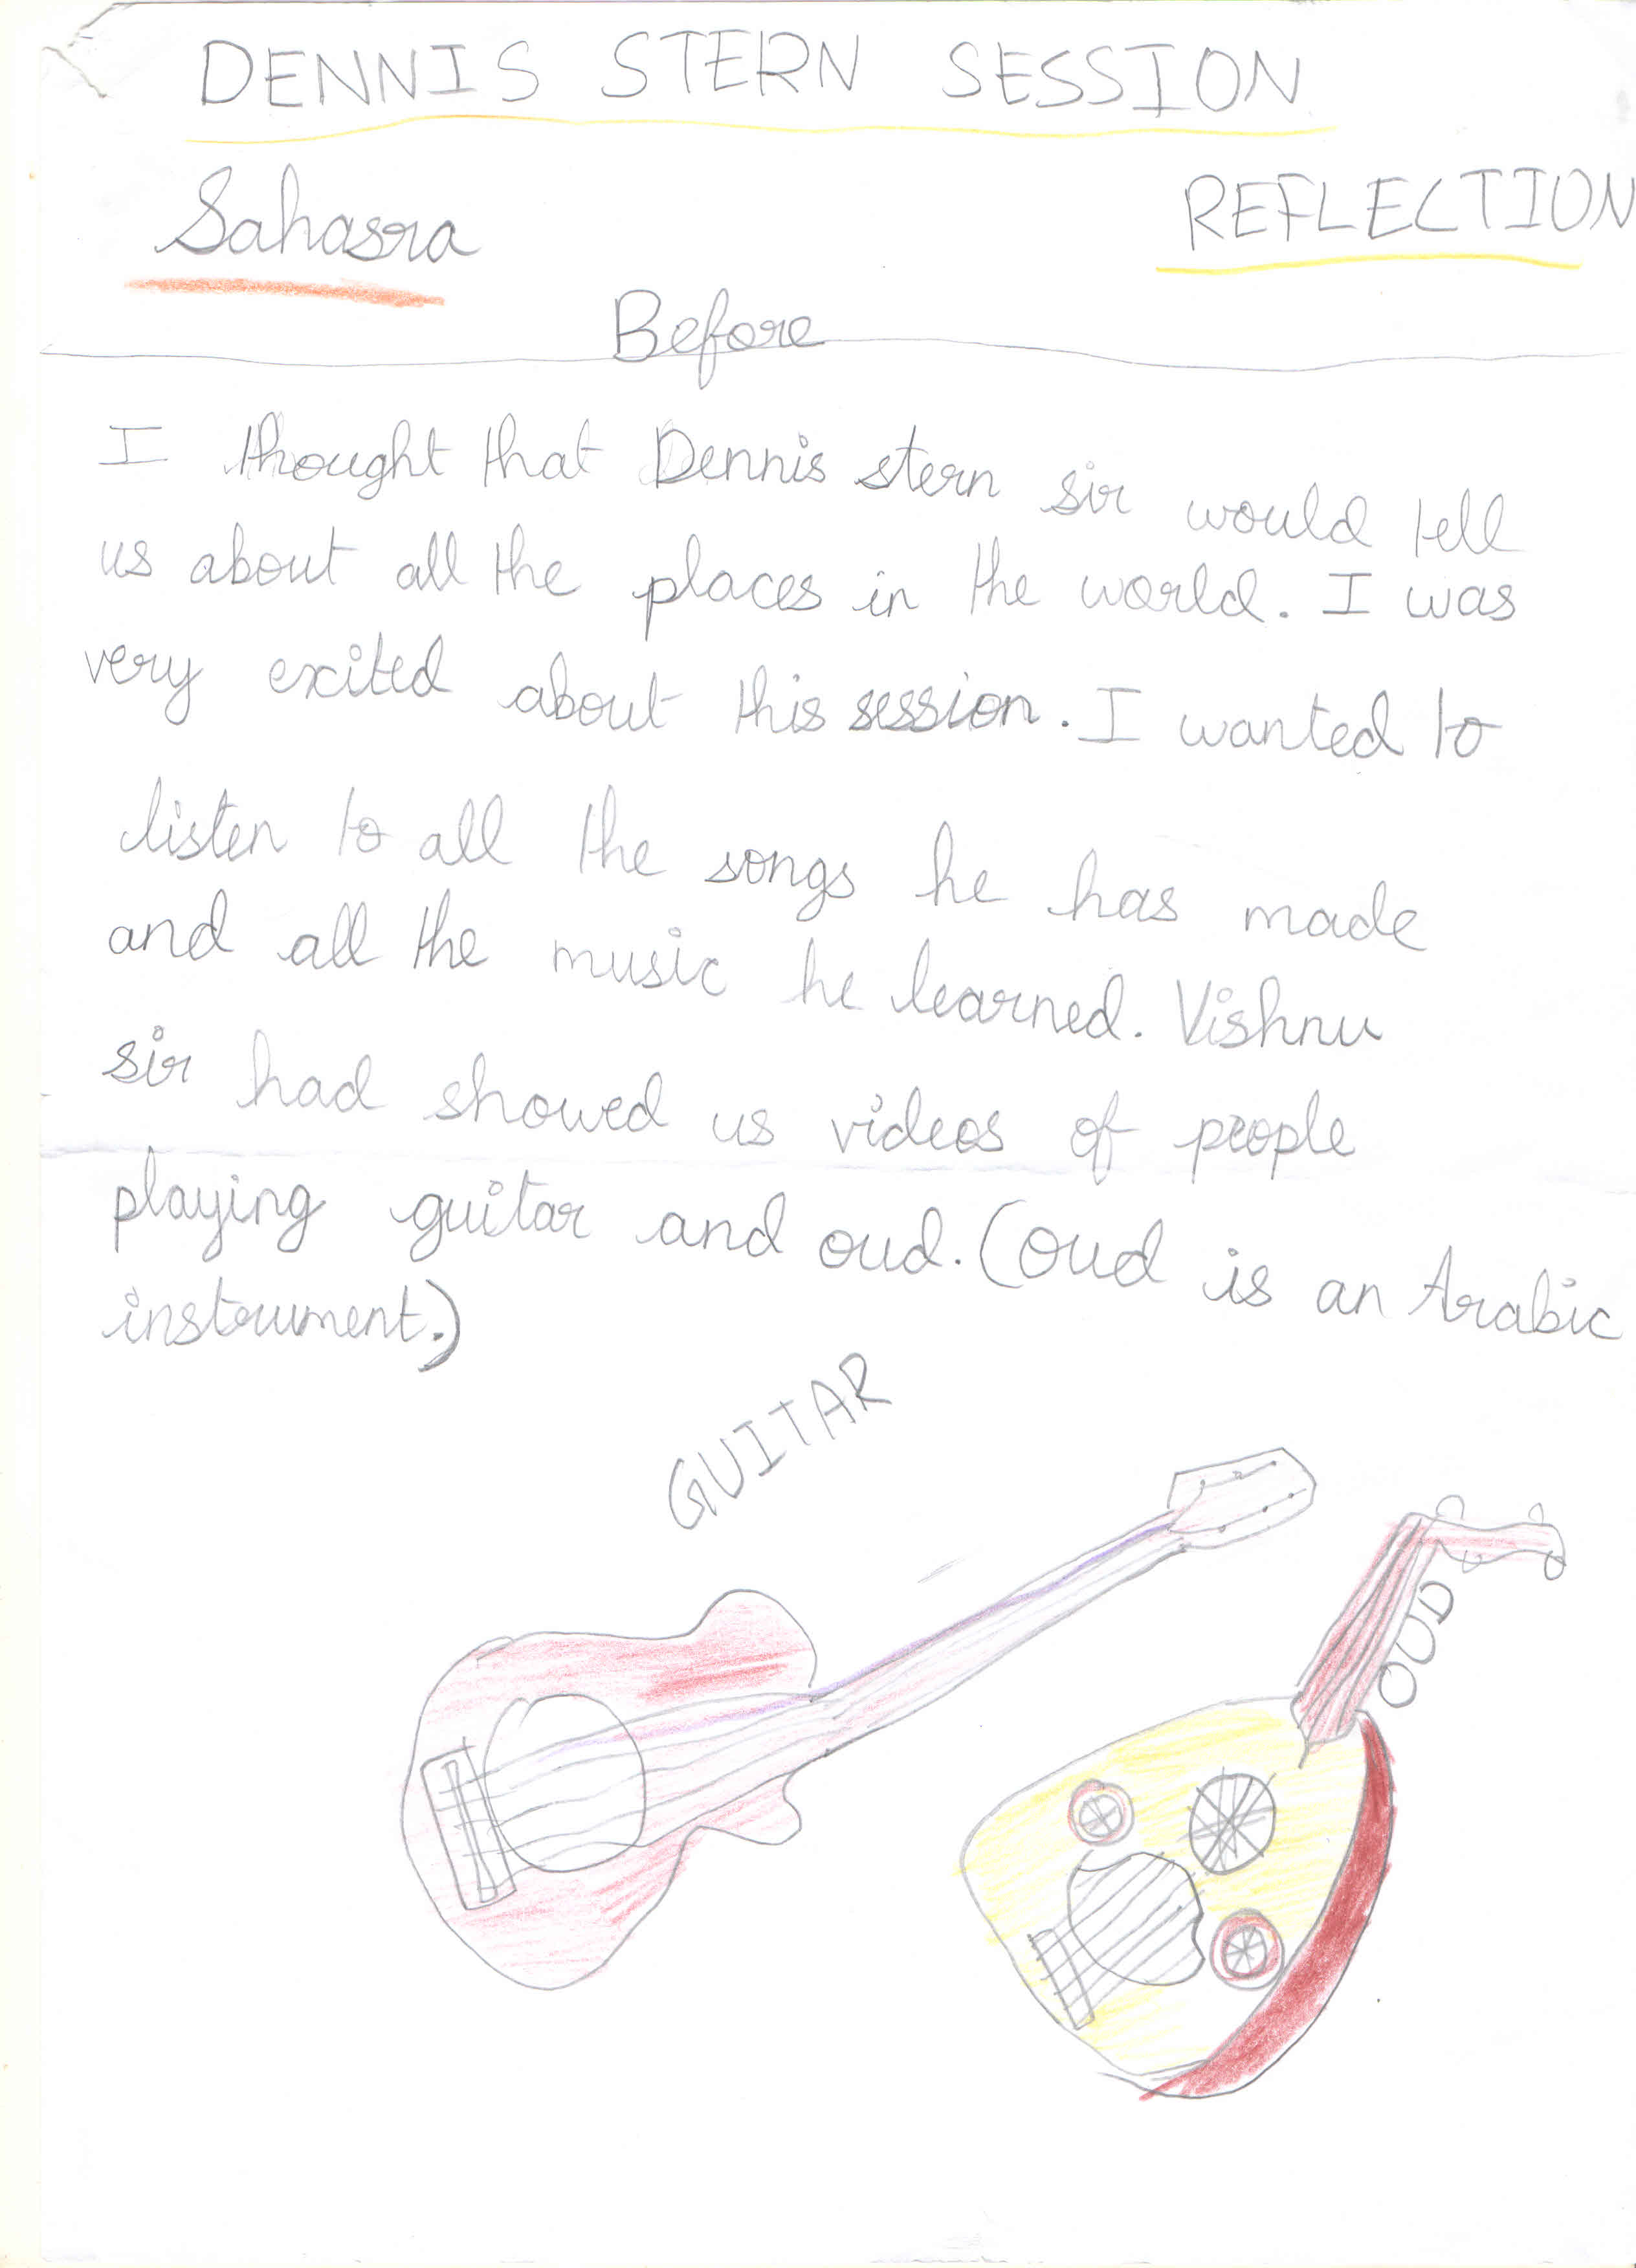 DENNIS STERN SESSION
Sahasra
REFLECTION
Before
I thought that Dennis stern sir would tell
us about all the places in the world. I was
very exited about this session. I wanted to
listen to all the songs he has made
and all the music he learned. Vishnu
sir had showed us videos of people
playing guitar and oud. (oud is an Arabic
instrument.)
GUITAR
OUD